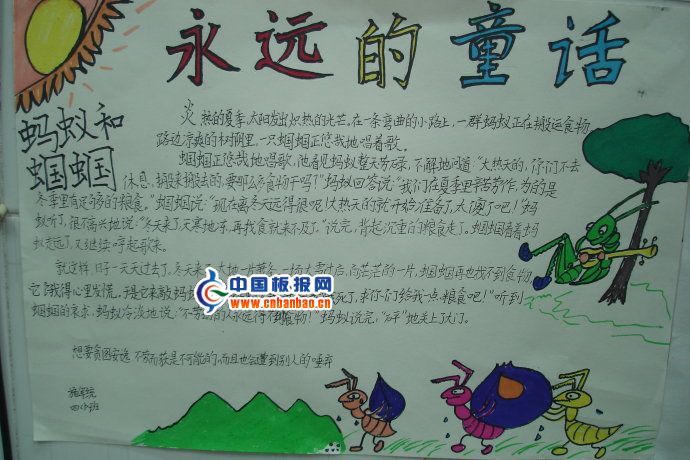 永远的童话
蚂蚁和
蝈蝈
炎热的夏季,太阳发出炽热的光芒,在一条弯曲的小路上,一群蚂蚁正在搬运食物,
路边凉爽的树荫里,一只蝈蝈正悠哉地唱着歌。
蝈蝈正悠哉地唱歌,他看见蚂蚁整天劳碌,不解地问道:“大热天的,你们不去
休息,搬来搬去的,要那么多食物干吗?”蚂蚁回答说:“我们在夏季里辛苦劳作,为的是
冬季里有足够的粮食。”蝈蝈说:“现在离冬天远得很呢!大热天的就开始准备了,太傻了吧!”蚂
蚁听了,很不高兴地说:“冬天来了,天寒地冻,再找食就来不及了。”说完,背起沉重的粮食走了。蝈蝈看着蚂
蚁走远了,又继续哼起歌来。
就这样,日子一天天过去了。冬天来了,大地一片,一场大雪过后,白茫茫的一片,蝈蝈再也找不到食物,
它饿得心里发慌。于是它来敲蚂 死了,求你们给我一点粮食吧!”听到
蝈蝈的哀求,蚂蚁冷漠地说:“不劳动的人永远得不到食物!”蚂蚁说完,“砰”地关上了大门。
想要贪图安逸,不劳而获是不可能的,而且也会遭到别人的唾弃
中国板报网
www.cnbanbao.cn
四(1)班